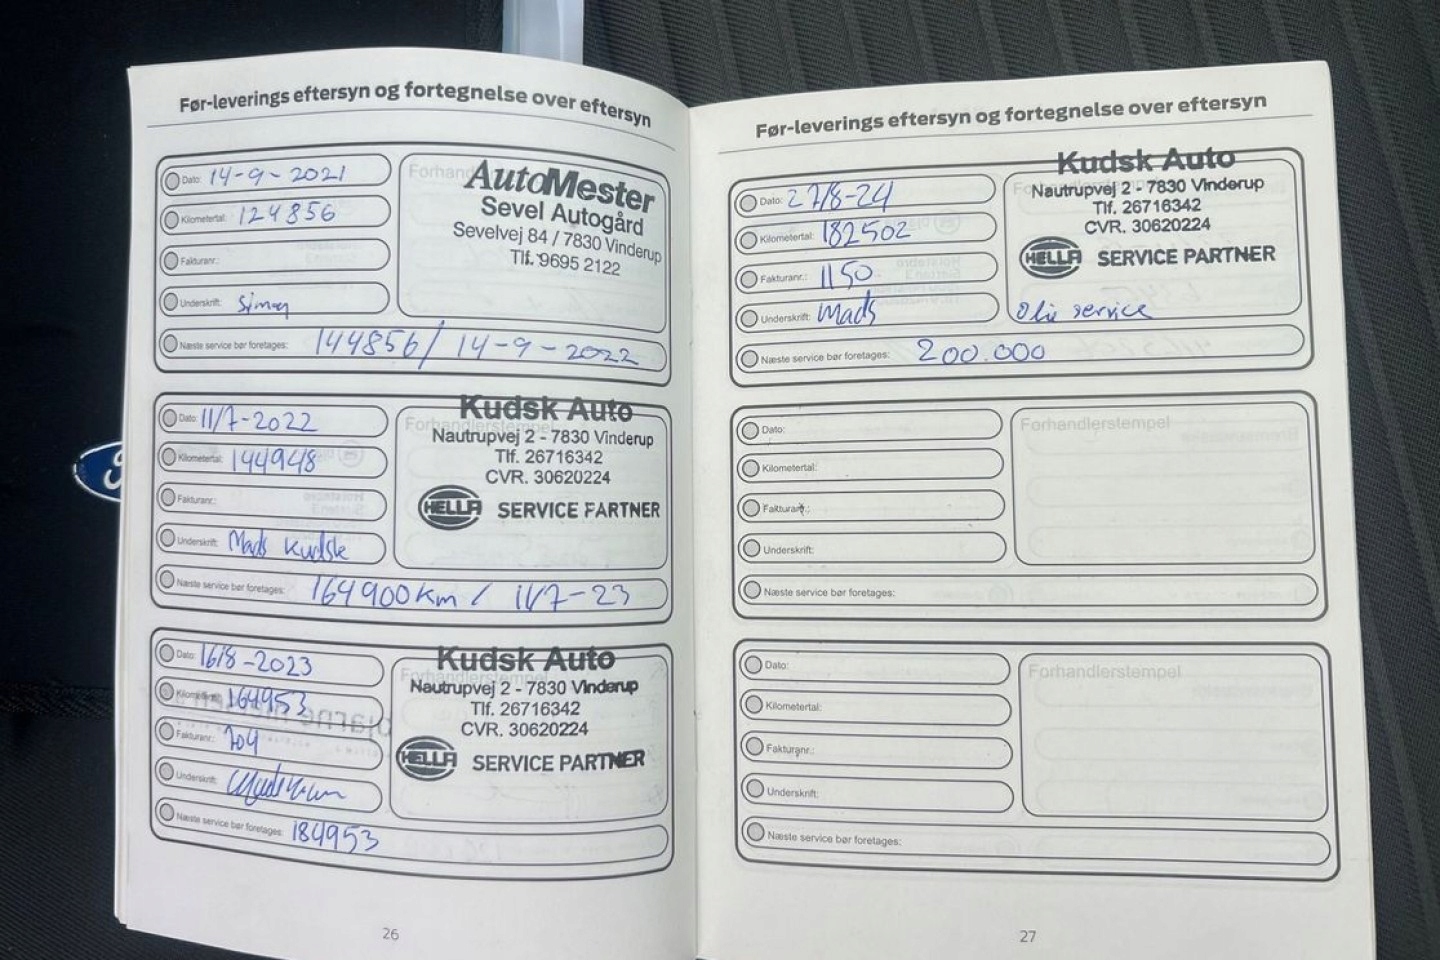 Før-leverings eftersyn og fortegnelse over eftersyn
Dato: 14-9-2021
Kilometertal: 124856
Fakturanr.:
Underskrift:
Næste service bør foretages: 144856/ 14-9-2022
Forhand
AutoMester
Sevel Autogård
Sevelvej 84 / 7830 Vinderup
Tlf. 9695 2122
Dato: 11/7-2022
Kilometertal: 144948
Fakturanr.:
Underskrift: Mads Kudsk
Næste service bør foretages: 164900 km / 11/7-23
Forhandlerstempel
Kudsk Auto
Nautrupvej 2 - 7830 Vinderup
Tlf. 26716342
CVR. 30620224
HELLA SERVICE PARTNER
Dato: 16/8-2023
Kilometertal: 164953
Fakturanr.: 704
Underskrift:
Næste service bør foretages: 184953
Forhandlerstempel
Kudsk Auto
Nautrupvej 2 - 7830 Vinderup
Tlf. 26716342
CVR. 30620224
HELLA SERVICE PARTNER
26
Før-leverings eftersyn og fortegnelse over eftersyn
Dato: 27/8-24
Kilometertal: 182502
Fakturanr.: 1150
Underskrift: Mads
Næste service bør foretages: 200.000
Kudsk Auto
Nautrupvej 2 - 7830 Vinderup
Tlf. 26716342
CVR. 30620224
HELLA SERVICE PARTNER
Olie service
Dato:
Kilometertal:
Fakturanr.:
Underskrift:
Næste service bør foretages:
Forhandlerstempel
Dato:
Kilometertal:
Fakturanr.:
Underskrift:
Næste service bør foretages:
Forhandlerstempel
27